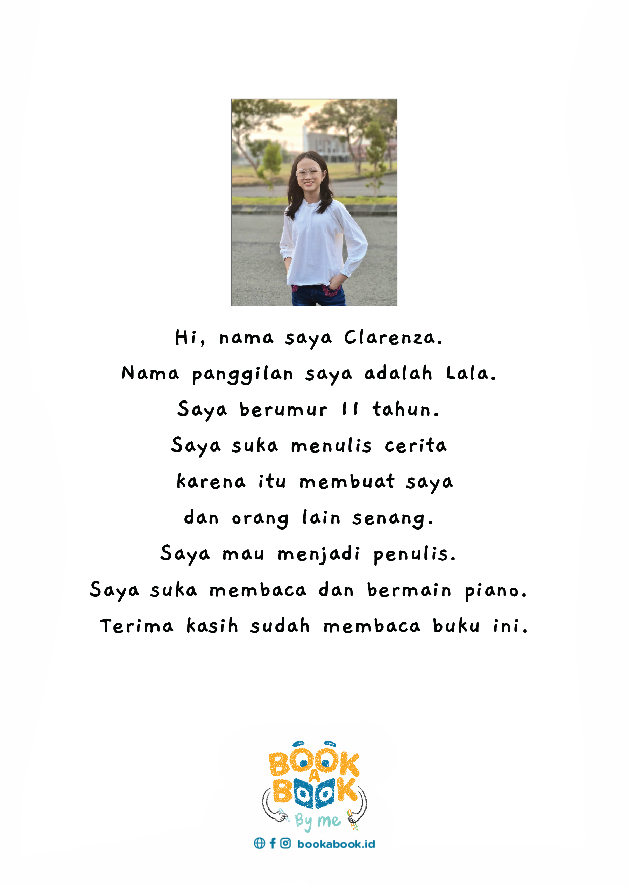 Hi, nama saya Clarenza.
Nama panggilan saya adalah Lala.
Saya berumur 11 tahun.
Saya suka menulis cerita
karena itu membuat saya
dan orang lain senang.
Saya mau menjadi penulis.
Saya suka membaca dan bermain piano.
Terima kasih sudah membaca buku ini.
BOOK
A
BOOK
By me
bookabook.id